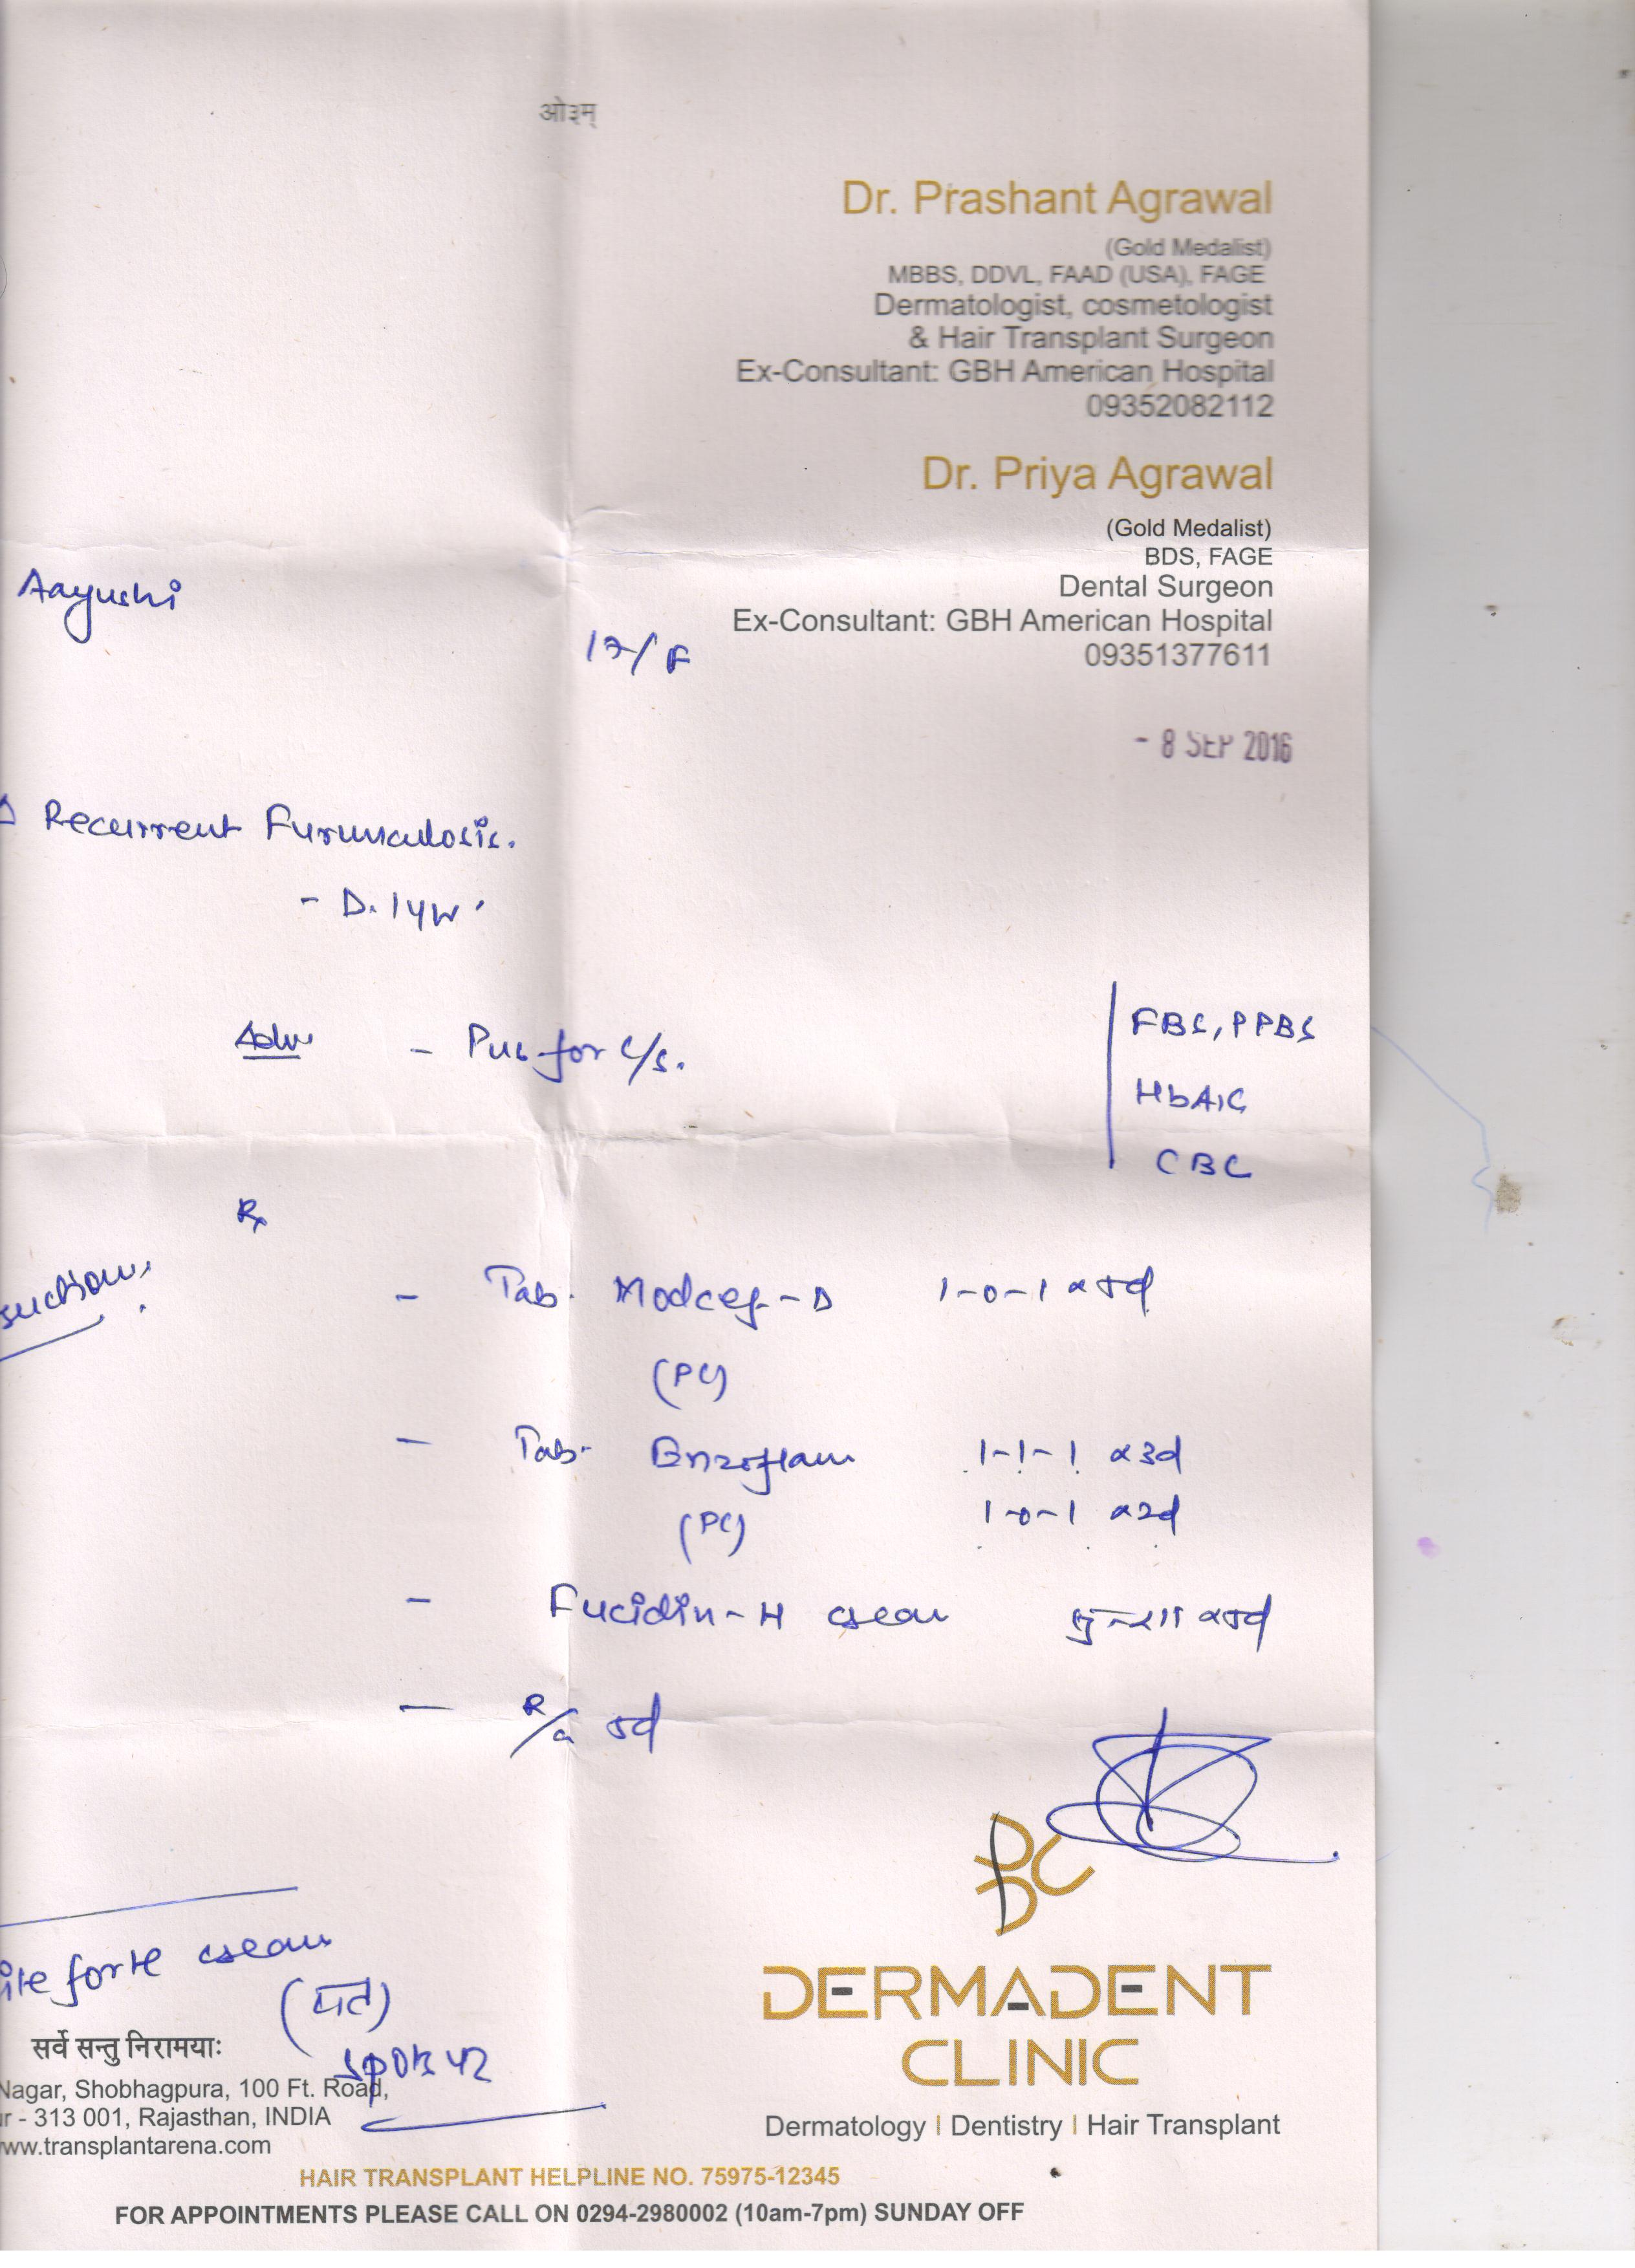 ओ३म्
Dr. Prashant Agrawal
(Gold Medalist)
MBBS, DDVL, FAAD (USA), FAGE
Dermatologist, cosmetologist
& Hair Transplant Surgeon
Ex-Consultant: GBH American Hospital
09352082112
Dr. Priya Agrawal
(Gold Medalist)
BDS, FAGE
Dental Surgeon
Ex-Consultant: GBH American Hospital
09351377611
Aayushi
17/F
- 8 SEP 2016
Δ Recurrent Furunculosis.
- D. 1yr
Adv - Pus for c/s.
FBS, PPBS
HbA1C
CBC
Rx
- Tab. Modcef-D 1-0-1 x 5d
(PC)
- Tab. Enzoflam 1-1-1 x 3d
(PC) 1-0-1 x 2d
- Fucidin-H cream x 5d
- R/a 5d
forte cream
सर्वे सन्तु निरामयाः
Nagar, Shobhagpura, 100 Ft. Road,
r - 313 001, Rajasthan, INDIA
ww.transplantarena.com
DERMADENT
CLINIC
Dermatology | Dentistry | Hair Transplant
HAIR TRANSPLANT HELPLINE NO. 75975-12345
FOR APPOINTMENTS PLEASE CALL ON 0294-2980002 (10am-7pm) SUNDAY OFF